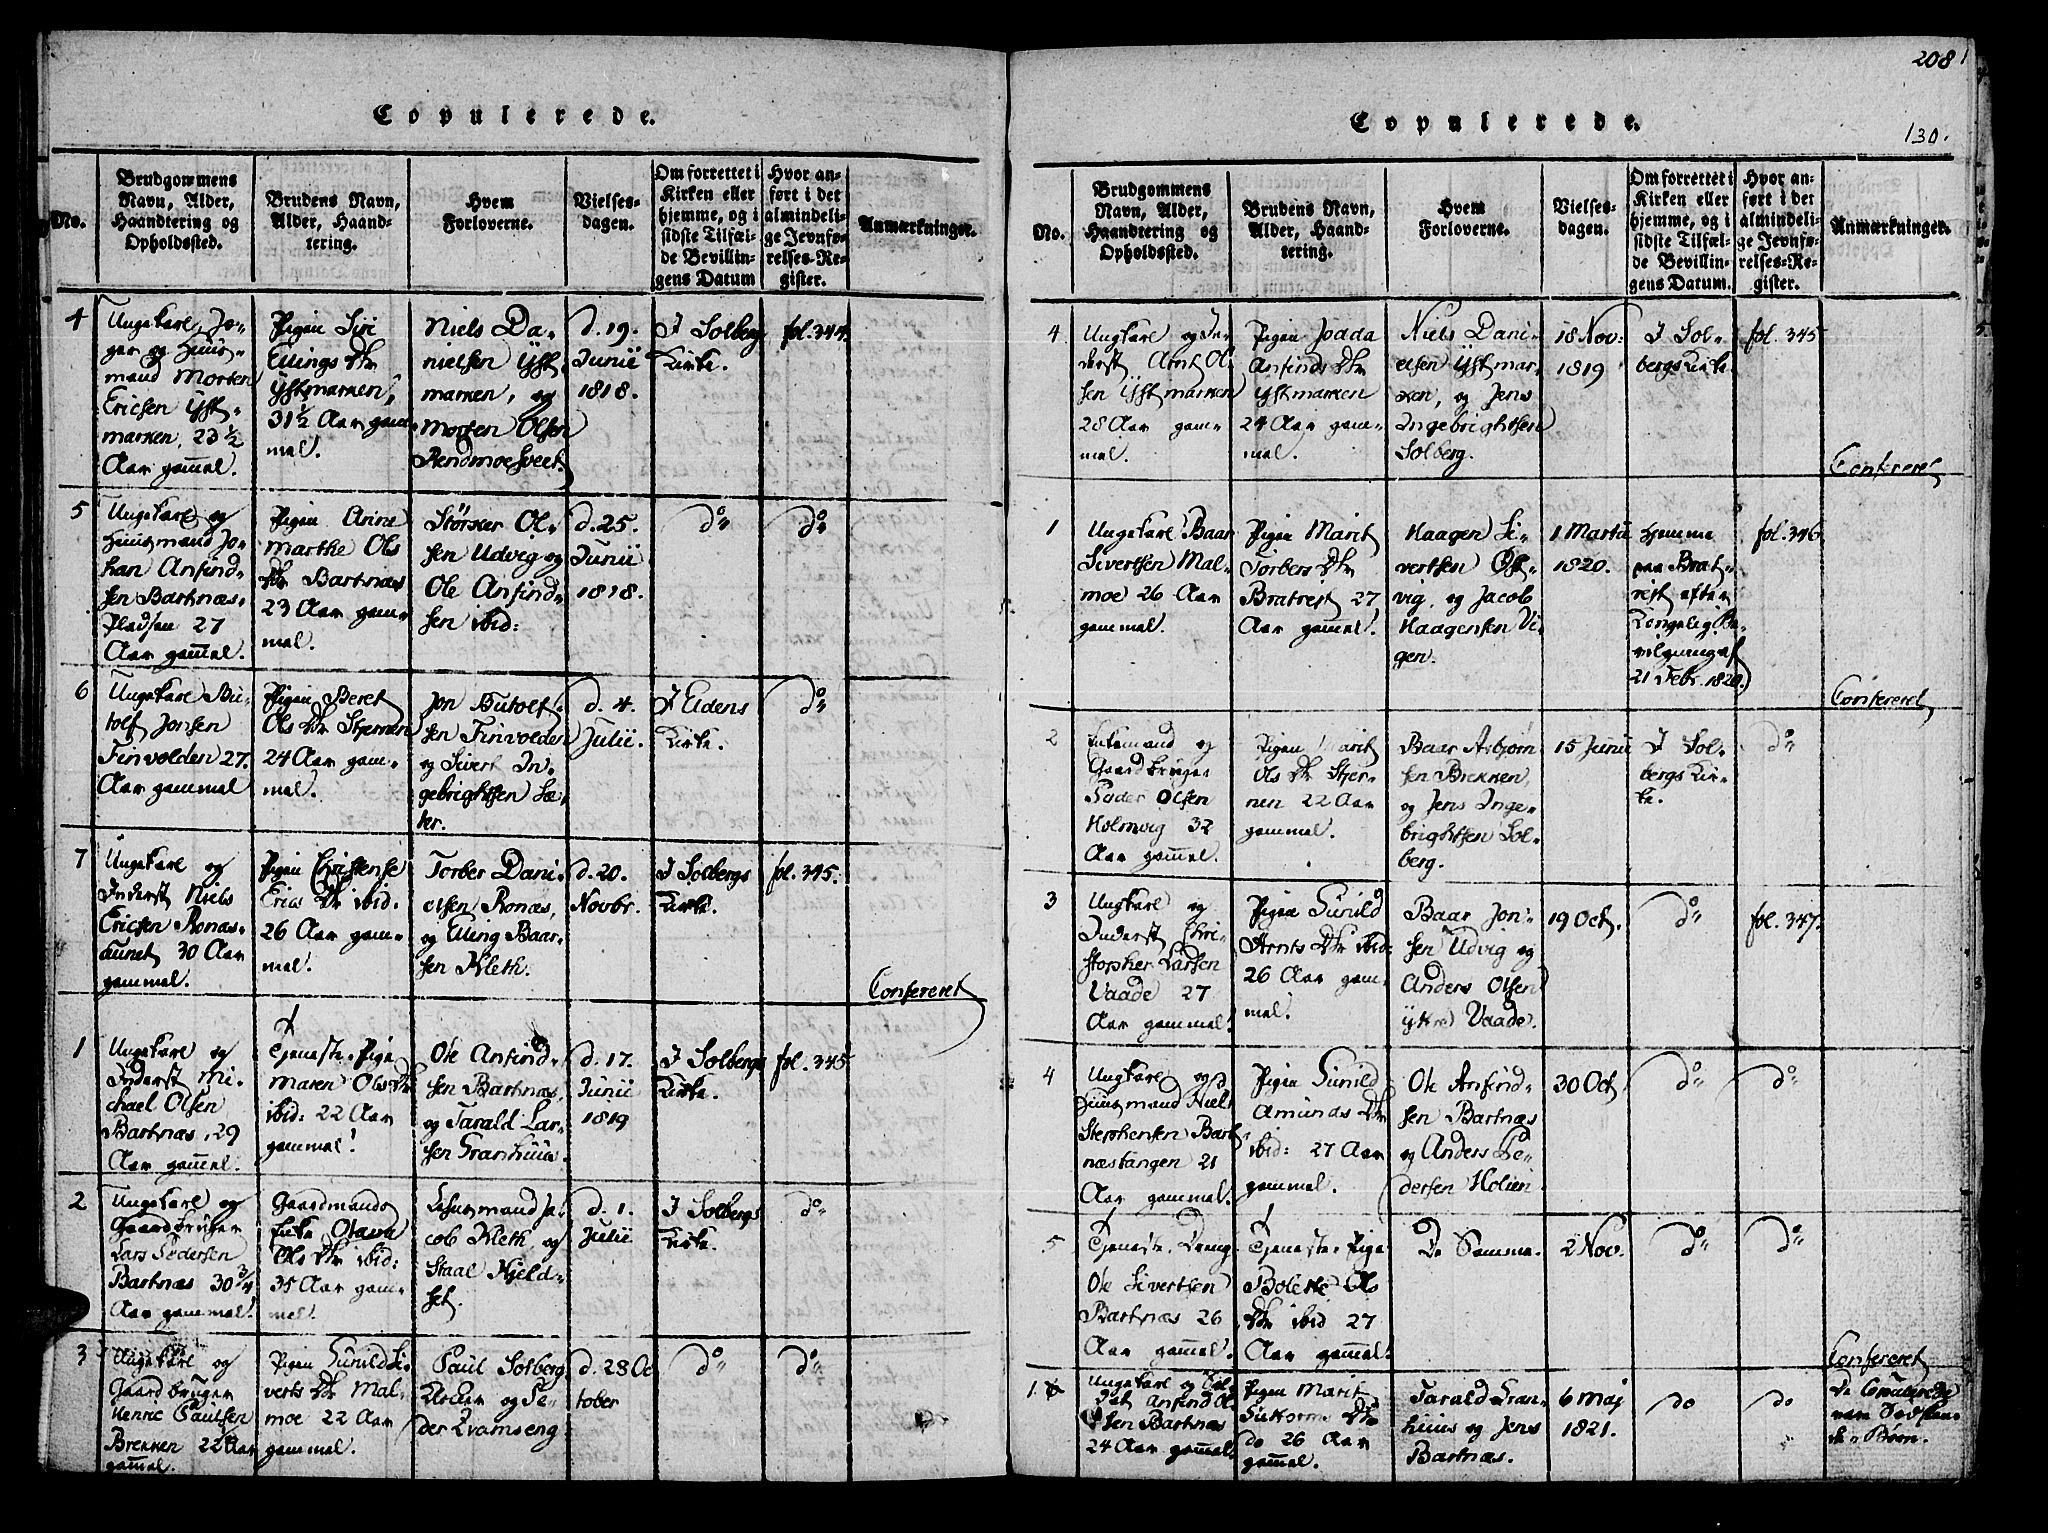 Copulerede.
No.
Brudgommens
Navn, Alder,
Haandtering og
Opholdssted.
Brudens Navn,
Alder, Haand-
tering.
Hvem
Forloverne.
Vielses-
dagen.
Om forrettet i
Kirken eller
hjemme, og i
sidste Tilfæl-
de Bevillin-
gens Datum
Hvor an-
ført i det
almindeli-
ge Jevnfø-
relses-Re-
gister.
Anmærkninger.
4
Ungekarl, Jæ-
ger og Huus-
mand Morten
Ericsen Ystt-
marken, 23 1/2
Aar gammel.
Pigen Siri
Ellings Dtr
Ystmarken,
31 1/2 Aar gam-
mel.
Niels Da-
nielsen Ystt
marken, og
Morten Olsen
d. 19.
Junii
1818.
I Solberg
Kirke.
fol. 344.
5
Ungekarl og
Huusmand Jo-
han Anfind-
sen Bartnæs-
Pladsen 27
Aar gammel.
Pigen Arina
marthe Ols
Dtr Bartnæs
23 Aar gam-
mel.
Størker Ol-
sen Udvig og
Ole Anfind-
sen ibid:
d. 25.
Junii
1818.
do
do
6
Ungekarl Bu-
tolf Jonsen
Finvolden 27.
Aar gammel
Pigen Beret
Ols Dtr Stjernen
24 Aar gam-
mel.
Jon Butolf-
sen Finvolden
og Sivert In-
gebrightsen Sæ-
ter.
d. 4.
Julii.
I Eldens
Kirke.
do
7
Ungekarl og
Inderst Niels
Ericsen Ronæs-
aunet 30 Aar
gammel.
Pigen Christense
Erics Dtr ibid.
26 Aar gam-
mel.
Torber Dani-
elsen Ronæs,
og Elling Baar-
sen Kleth.
d. 20.
Novbr.
I Solbergs
Kirke.
fol. 345.
Confereret
1
Ungekarl og
Inderst Mi-
chael Olsen
Bartnæs, 29
Aar gammel.
Tjeneste-Pige
Maren Ols Dtr
ibid: 22 Aar
gammel!
Ole Anfind-
sen Bartnæs,
og Tarald Lar-
sen Granhuus.
d. 17.
Junii
1819
I Solbergs
Kirke.
fol. 345
2
Ungekarl og
Gaardbruger
Lars Pedersen
Bartnæs 30 3/4
Aar gammel!
Gaardmands
Enke Olava
Ols Dtr ibid:
35 Aar gam-
mel.
Lehnsmand Ja-
cob Kleth og
Staal Kjeld-
set.
d. 1.
Julii
I Solbergs
Kirke.
do
3
Ungekarl og
Gaardbruger
Henric Paulsen
Brekken 22 Aar
gammel.
Pigen Gunild Si-
verts Dtr Mal-
moe 22 Aar
gammel.
Paul Solberg
Kirkeier og Pe-
der Qvamseng
d. 28 Oc
tober
do
do
208
130.
Copulerede.
No.
Brudgommens
Navn, Alder,
Haandtering og
Opholdssted.
Brudens Navn,
Alder, Haand-
tering.
Hvem
Forloverne.
Vielses-
dagen.
Om forrettet i
Kirken eller
hjemme, og i
sidste Tilfæl-
de Bevillin-
gens Datum.
Hvor an-
ført i det
almindeli-
ge Jevnfø-
relses-Re-
gister.
Anmærkninger.
4
Ungkarl og In-
derst Arnt Ol-
sen Ystmarken
28 Aar gam-
mel.
Pigen Joada
Anfinds Dtr
Ystmarken
24 Aar gam-
mel.
Niels Dani-
elsen Ystmar-
ken, og Jens
Ingebrightsen
Solberg.
18 Nov:
1819
I Sol-
bergs Kirke
fol. 345
Confereret
1
Ungekarl Baar
Sivertsen Mal-
moe 26 Aar
gammel.
Pigen Marit
Torbers Dtr
Bratrest 27
Aar gammel.
Haagen Si-
vertsen
vig, og Jacob
Haagensen Vi-
gen.
1 Martii
1820.
Hjemme
paa Brat-
rest efter
Kongelig Be-
vilgning af
21 Febr. 1820.
fol. 346
Confereret
2
Enkemand og
Gaardbruger
Peder Olsen
Holmvig 32
Aar gammel.
Pigen Marit
Ols Dtr Stjer-
nen 22 Aar
gammel.
Baar Asbjørn-
sen Brekken,
og Jens Inge-
brightsen Sol-
berg.
15 Junii
I Sol-
bergs Kir-
ke.
do
3
Ungkarl og
Inderst Chri-
stopher Larsen
Vaade 27
Aar gammel.
Pigen Gunild
Arnts Dtr ibid:
26 Aar gam-
mel.
Baar Jon-
sen Udvig og
Anders Olsen
yttre Vaade.
19 Oct.
do
fol. 347.
4
Ungkarl og
Huusmand Niels
Stephensen Bart-
næstangen 21
Aar gammel.
Pigen Gunild
Amunds Dtr
ibid: 27 Aar
gammel.
Ole Anfind-
sen Bartnæs
og Anders Pe-
dersen Holien
30 Oct.
do
do
5
Tjeneste-Dreng
Ole Sivertsen
Bartnæs 26
Aar gammel.
Tjeneste-Pige
Bolette Ols
Dtr ibid 27
Aar gammel!
De Samme
2 Nov.
do
do
Confereret
1.
Ungekarl og Sol-
dat Anfind Ol-
sen Bartnæs
24 Aar gammel
Pigen Marit
Guttorms Dtr
do 26 Aar
gammel.
Tarald Gran-
huus og Jens
Bartnæs.
6 Maj
1821.
do
do
De Copulerede
vare Sødsken-
de-Børn.